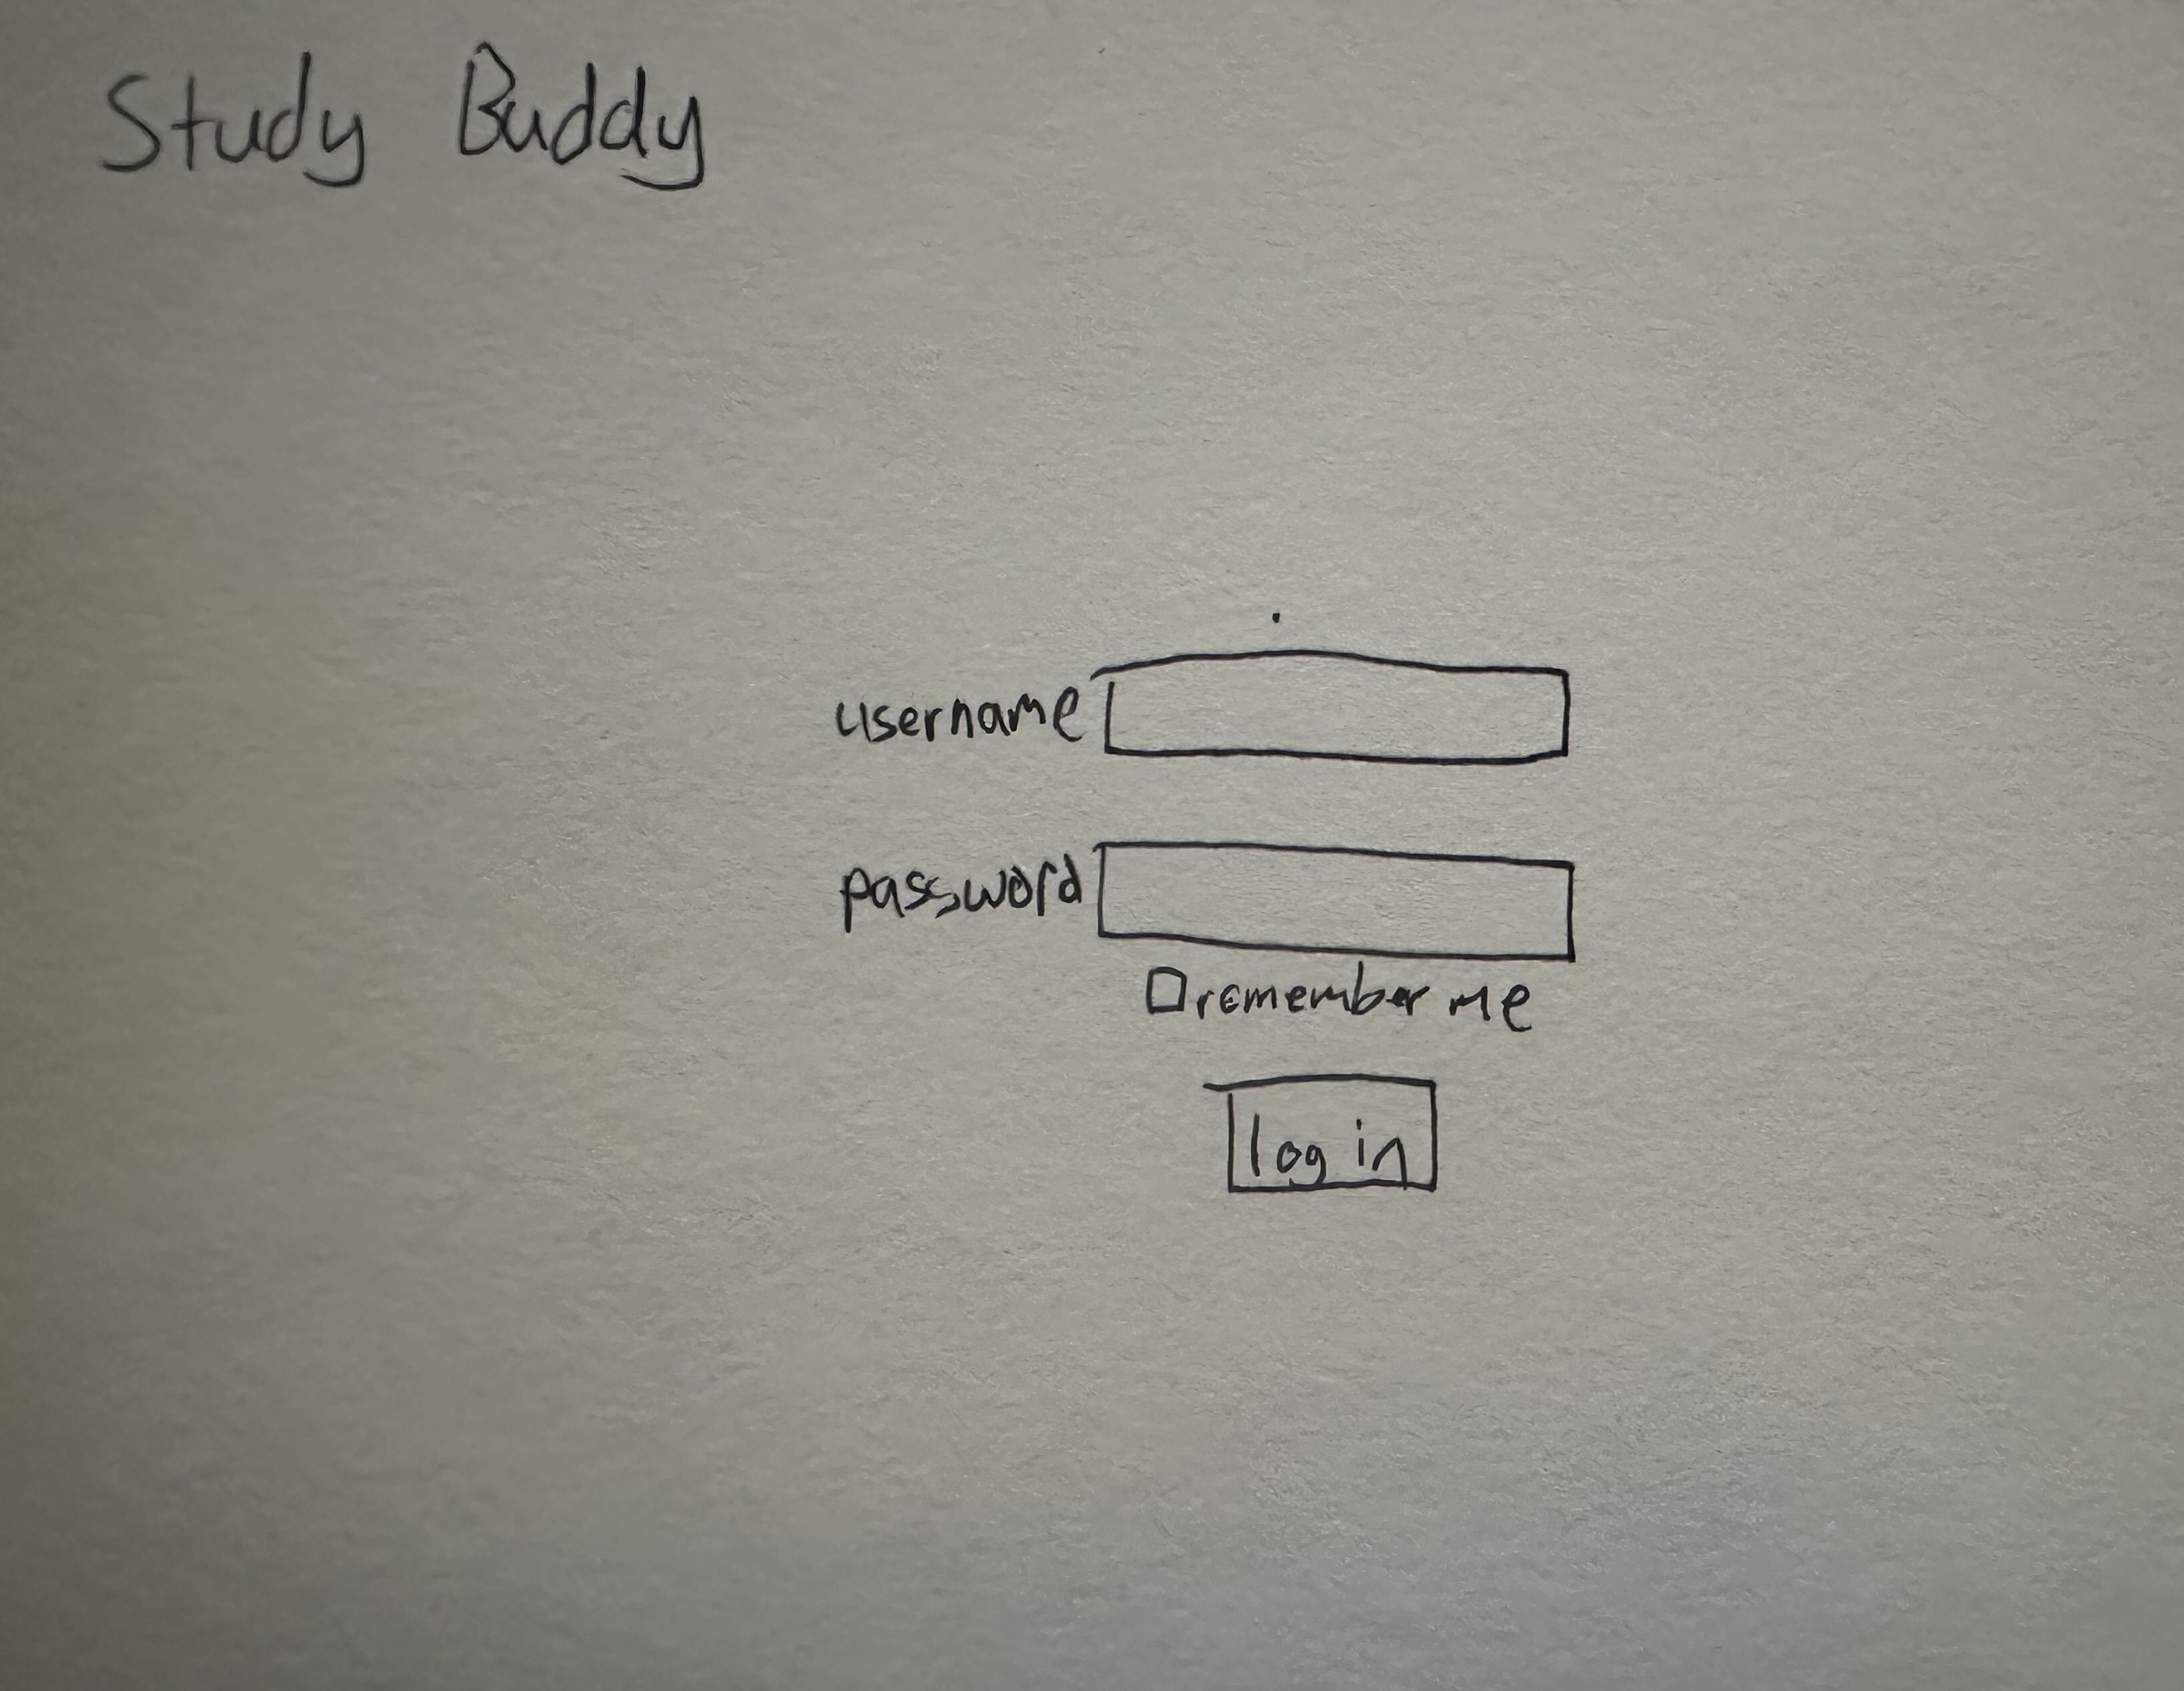 Study Buddy
username
password
remember me
log in